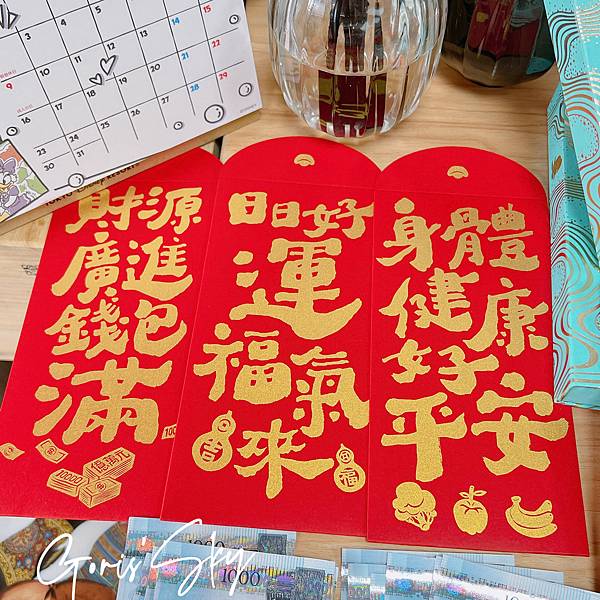 3 4 5 6 7 8
9 10 11 12 13 14 15
16 17 18 19 20 21 22
23 24 25 26 27 28 29
30 31
TOKYO Disney RESORT
財源
廣進
錢包
滿
億萬元
10000
日日好
運
福氣
來
吉
福
身體
健康
好
平安
1000
1000
Goris' Sky